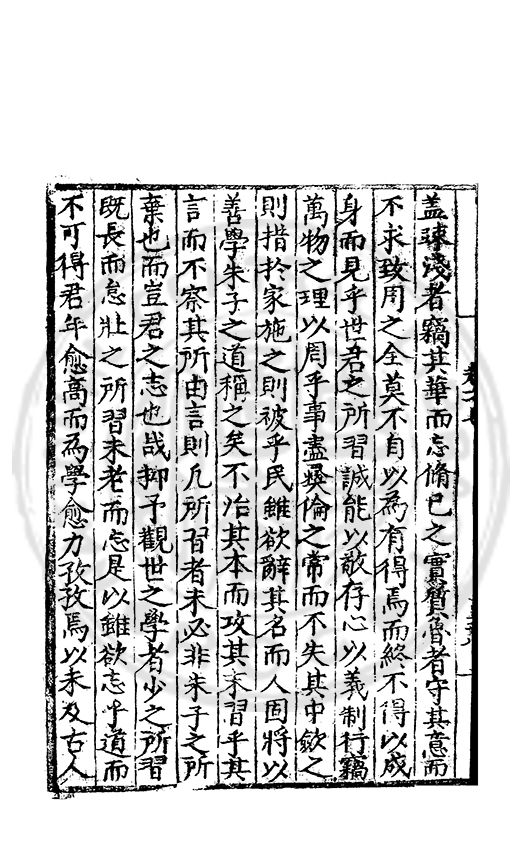 盖疎淺者竊其華而忘脩已之實質魯者守其意而
不求致用之全莫不自以為有得焉而終不得以成
身而見乎世君之所習誠能以敬存心以義制行窮
萬物之理以周乎事盡彛倫之常而不失其中歛之
則措扵家施之則被乎民雖欲辭其名而人固將以
善學朱子之道稱之矣不治其本而攻其末習乎其
言而不察其所由言則凡所習者未必非朱子之所
棄也而豈君之志也哉抑予觀世之學者少之所習
既長而怠壯之所習未老而忘是以雖欲志乎道而
不可得君年愈高而為學愈力孜孜焉以未及古人